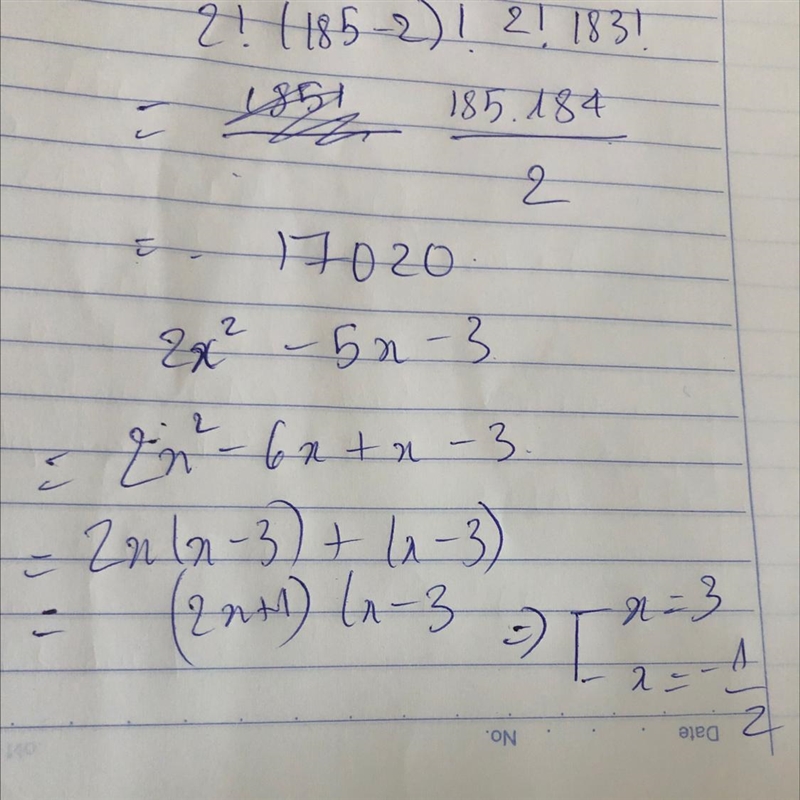 2! (185-2)! 2! 183!
= 185.184 / 2
= . 17020.
2x² - 5x - 3
= 2x² - 6x + x - 3.
= 2x(x-3) + (x-3)
= (2x+1) (x-3 => [ x = 3
x = -1/2
Date
No.